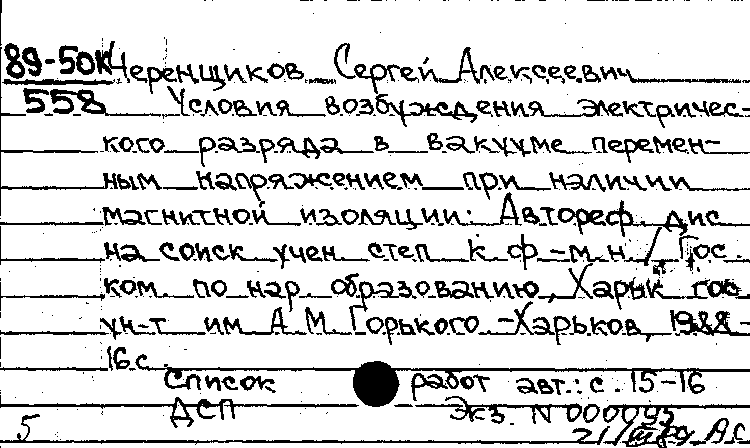 89-50К Черенщиков Сергей Алексеевич
558 Условия возбуждения электричес-
кого разряда в вакууме перемен-
ным напряжением при наличии
магнитной изоляции: Автореф. дис
на соиск учен степ к. ф.-м. н. / Гос.
ком. по нар. образованию, Харьк гос
ун-т им А.М. Горького. -Харьков, 1988-
16с.
Список работ авт.: с. 15-16
ДСП Экз. N 000095
5 21/III 89 А.С